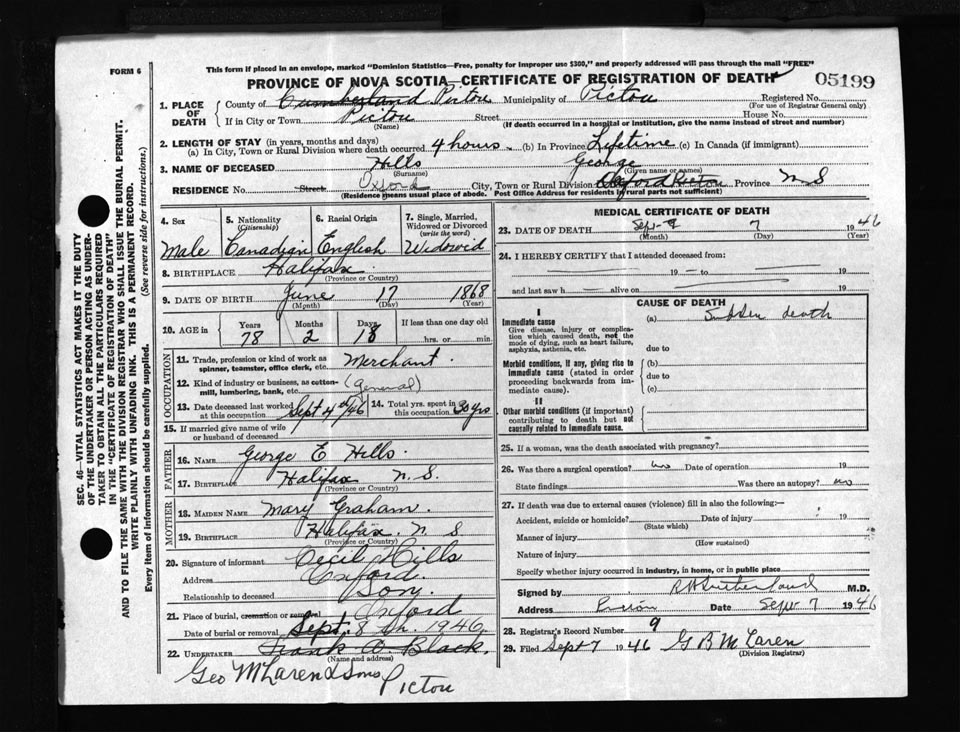 FORM 6
This form if placed in an envelope, marked "Dominion Statistics—Free, penalty for improper use $300," and properly addressed will pass through the mail "FREE"
PROVINCE OF NOVA SCOTIA—CERTIFICATE OF REGISTRATION OF DEATH
05199
1. PLACE OF DEATH
County of Cumberland Pictou Municipality of Pictou Registered No.
(For use of Registrar General only)
If in City or Town Pictou Street House No.
(Name) (If death occurred in a hospital or institution, give the name instead of street and number)
2. LENGTH OF STAY (in years, months and days)
(a) In City, Town or Rural Division where death occurred 4 hours (b) In Province Lifetime (c) In Canada (if immigrant)
3. NAME OF DECEASED Hills George
(Surname) (Given name or names)
RESIDENCE No. Street Oxford City, Town or Rural Division Oxford Pictou Province N S
(Residence means usual place of abode. Post Office Address for residents in rural parts not sufficient)
4. Sex
Male
5. Nationality
(Citizenship)
Canadian
6. Racial Origin
English
7. Single, Married, Widowed or Divorced
(write the word)
Widowid
8. BIRTHPLACE Halifax
(Province or Country)
9. DATE OF BIRTH June 17 1868
(Month) (Day) (Year)
10. AGE in
Years Months Days If less than one day old
78 2 18 hrs. or min.
OCCUPATION
11. Trade, profession or kind of work as spinner, teamster, office clerk, etc. Merchant
12. Kind of industry or business, as cotton-mill, lumbering, bank, etc. (General)
13. Date deceased last worked at this occupation Sept 4th/46
14. Total yrs. spent in this occupation 30 yrs
15. If married give name of wife or husband of deceased
FATHER
16. NAME George E Hills
17. BIRTHPLACE Halifax N. S.
(Province or Country)
MOTHER
18. MAIDEN NAME Mary Graham
19. BIRTHPLACE Halifax N. S
(Province or Country)
20. Signature of informant Cecil Hills
Address Oxford
Relationship to deceased Son
21. Place of burial, cremation or removal Oxford
Date of burial or removal Sept. 8 th. 1946
22. UNDERTAKER Frank O. Black.
(Name and address)
Geo McLaren & Sons
Pictou
MEDICAL CERTIFICATE OF DEATH
23. DATE OF DEATH Sept 7 1946
(Month) (Day) (Year)
24. I HEREBY CERTIFY that I attended deceased from:
19 to 19
and last saw h alive on 19
CAUSE OF DEATH
I
Immediate cause
Give disease, injury or complication which caused death, not the mode of dying, such as heart failure, asphyxia, asthenia, etc.
(a) Sudden death
due to
Morbid conditions, if any, giving rise to immediate cause (stated in order proceeding backwards from immediate cause).
(b)
due to
(c)
II
Other morbid conditions (if important) contributing to death but not causally related to immediate cause.
25. If a woman, was the death associated with pregnancy?
26. Was there a surgical operation? no Date of operation 19
State findings Was there an autopsy? no
27. If death was due to external causes (violence) fill in also the following:—
Accident, suicide or homicide? Date of injury 19
(State which)
Manner of injury
(How sustained)
Nature of injury
Specify whether injury occurred in industry, in home, or in public place
Signed by Sutherland M.D.
Address Pictou Date Sept 7 1946
28. Registrar's Record Number 9
29. Filed Sept 7 1946 G B McLaren
(Division Registrar)
SEC. 46—VITAL STATISTICS ACT MAKES IT THE DUTY
OF THE UNDERTAKER OR PERSON ACTING AS UNDERTAKER TO OBTAIN ALL THE PARTICULARS REQUIRED
IN THE "CERTIFICATE OF REGISTRATION OF DEATH"
AND TO FILE THE SAME WITH THE DIVISION REGISTRAR WHO SHALL ISSUE THE BURIAL PERMIT.
WRITE PLAINLY WITH UNFADING INK. THIS IS A PERMANENT RECORD.
Every item of information should be carefully supplied. (See reverse side for instructions.)